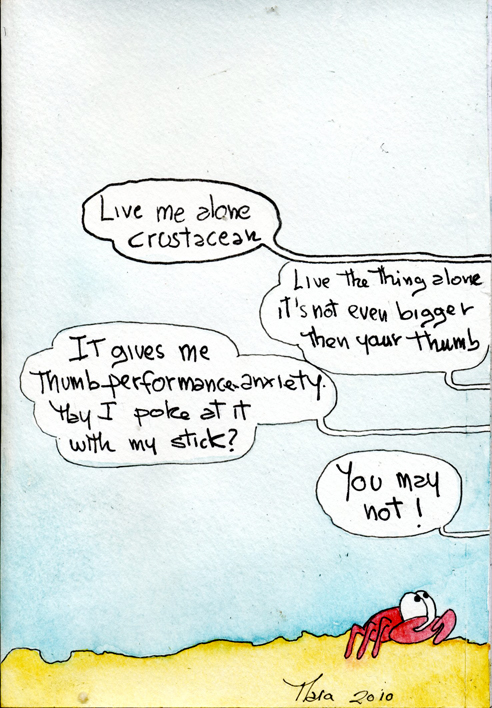 Live me alone
crustacean
Live the thing alone
it's not even bigger
then your thumb
IT gives me
Thumb-performance-anxiety.
May I poke at it
with my stick?
You may
not!
Mara 2010